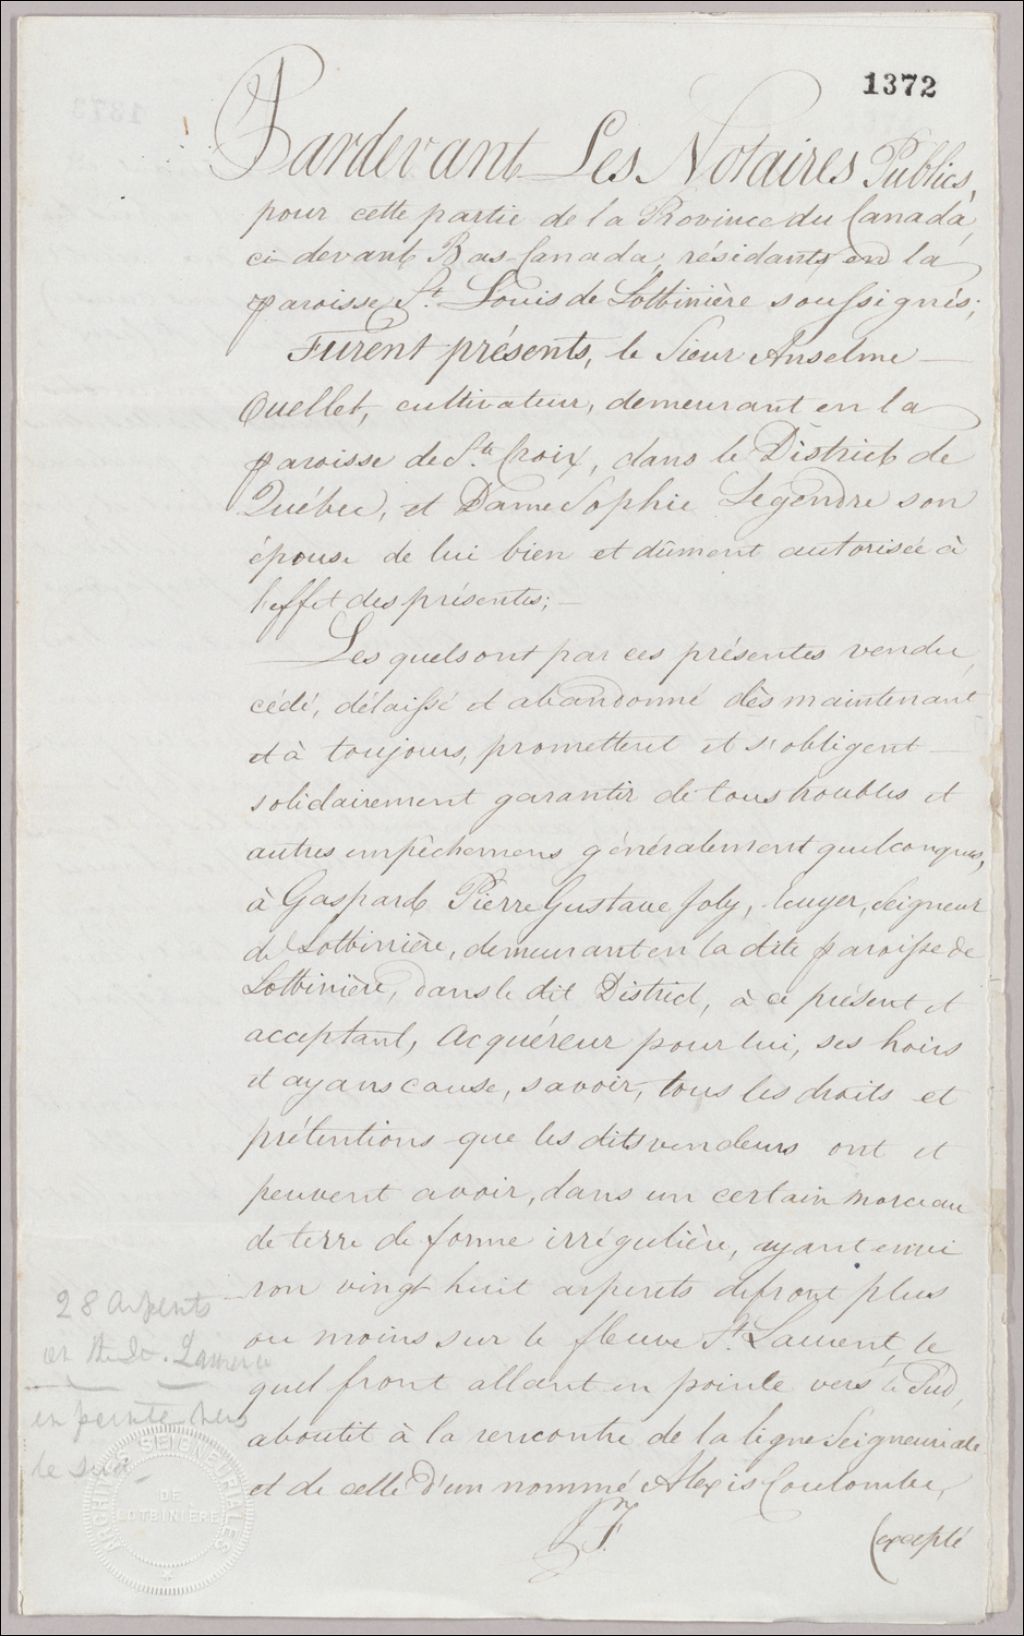 1372
Pardevant Les Notaires Publics,
pour cette partie de la Province du Canada,
ci-devant Bas-Canada, résidants en la
paroisse St. Louis de Lotbinière soussignés;
Furent présents, le Sieur Anselme
Ouellet, cultivateur, demeurant en la
paroisse de Ste. Croix, dans le District de
Québec, et Dame Sophie Legendre son
épouse de lui bien et dûment autorisée à
l'effet des présentes;
Les quels ont par ces présentes vendu,
cédé, délaissé et abandonné dès maintenant
et à toujours, promettent et s'obligent
solidairement garantir de tous troubles et
autres empêchemens généralement quelconques,
à Gaspard Pierre Gustave Joly, Ecuyer, Seigneur
de Lotbinière, demeurant en la dite paroisse de
Lotbinière, dans le dit District, à ce présent et
acceptant, Acquéreur pour lui, ses hoirs
et ayans cause, savoir, tous les droits et
prétentions que les dits vendeurs ont et
peuvent avoir, dans un certain morceau
de terre de forme irrégulière, ayant envi
ron vingt huit arpents de front plus
ou moins sur le fleuve St. Laurent, le
quel front allant en pointe vers le Sud,
aboutit à la rencontre de la ligne Seigneuriale
et de celle d'un nommé Alexis Coulombe,
excepté
28 Arpents
Laurent
en pointe vers
le sud
ARCHIVES SEIGNEURIALES
DE
LOTBINIERE